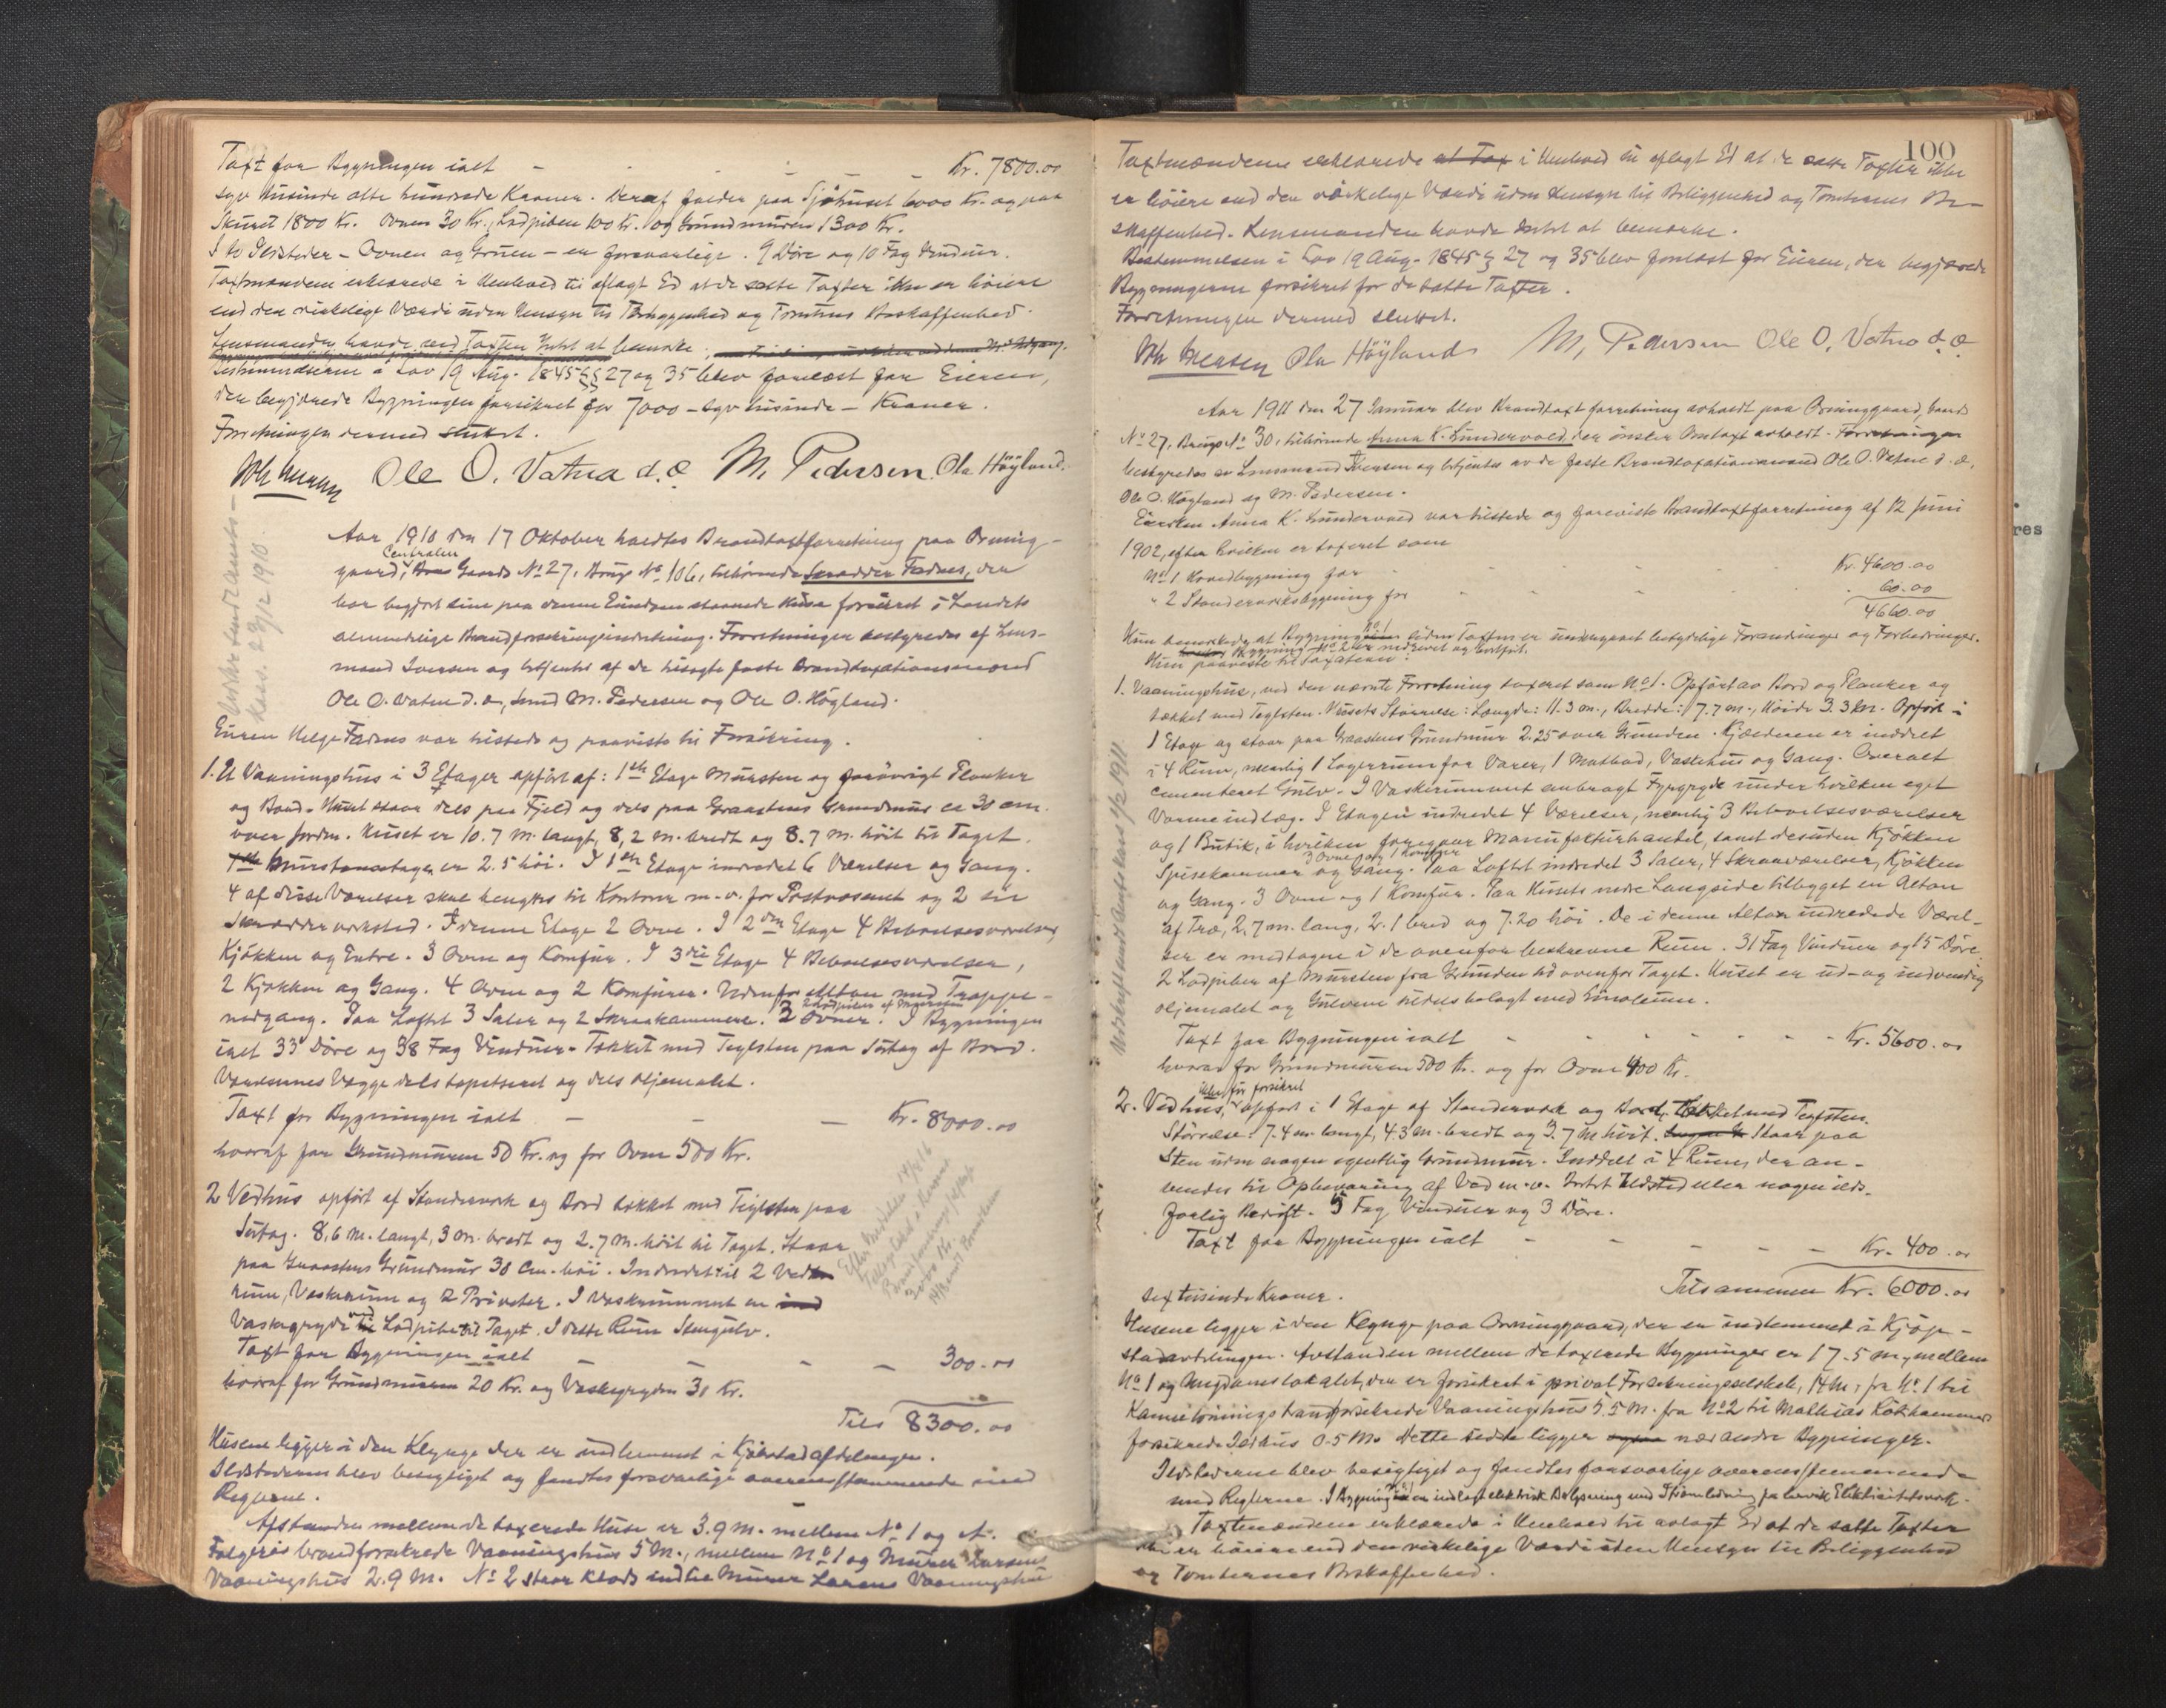 Taxt for Bygningen ialt - - - - Kr. 7800.00
syv tusinde otte hundrede Kroner. Deraf falder paa Sjøhuset 6000 Kr. og paa
Skuret 1800 Kr. Ovnen 30 Kr., Lodpiben 100 Kr. og Grundmuren 1300 Kr.
Ildsteder - Ovnen og Gruen - er forsvarlige. 9 Døre og 10 Fag Vinduer.
Taxtmændene erklærede i Henhold til aflagt Ed at de satte Taxter ikke er høiere
end den virkelige Værdi uden Hensyn til Beliggenhed og Tomtens Beskaffenhed.
Lensmanden havde ved Taxten Intet at bemærke.
Bestemmelserne i Lov 19 Aug. 1845 §§ 27 og 35 blev forelæst for Eieren,
der begjærede Bygningen forsikret for 7000 - syv tusinde - Kroner.
Forretningen dermed sluttet.
Ole O. Vatna d.æ. M. Pedersen Ole Höyland.
Aar 1910 den 17 Oktober holdtes Brandtaxtforretning paa Øvning-
gaard, Centralen Gaards No 27, Brugs No 106, tilhørende Skrædder Fadnes, der
har begjært sine paa denne Eiendom staaende Huse forsikret i Landets
almindelige Brandforsikringsindretning. Forretningen bestyredes af Lens-
mand Iversen og betjentes af de tilsagte faste Brandtaxationsmænd
Ole O. Vatna d.æ., Smed M. Pedersen og Ole O. Høyland.
Eieren Helge Fadnes var tilstede og paaviste til Forsikring.
1. Et Vaaningshus i 3 Etager opført af: 1ste Etage Mursten og forøvrigt Planker
og Bord. Huset staar dels paa Fjeld og dels paa Graastens Grundmur er 30 cm.
over Jorden. Huset er 10.7 m. langt, 8,2 m. bredt og 8.7 m. høit til Taget.
Murstensetagen er 2.5 høi. I 1ste Etage indredet 6 Værelser og Gang.
4 af disse Værelser skal benyttes til Kontorer m.v. for Postvæsenet og 2 til
Skrædderverksted. I denne Etage 2 Ovne. I 2den Etage 4 Beboelsesværelser,
Kjøkken og Entre. 3 Ovne og Komfur. I 3die Etage 4 Beboelsesværelser,
2 Kjøkken og Gang. 4 Ovne og 2 Komfurer. Udenfor Altan med Trappe-
nedgang. Paa Loftet 3 Saler og 2 Skraakammere. 2 Lodpiber af Mursten. 2 Ovner. I Bygningen
ialt 33 Døre og 38 Fag Vinduer. Tækket med Teglsten paa Sutag af Bord.
Værelsernes Vægge dels tapetseret og dels oljemalet.
Taxt for Bygningen ialt - - - Kr. 8000.00
hvoraf for Grundmuren 50 Kr. og for Ovne 500 Kr.
2 Vedhus opført af Stenderverk og Bord tækket med Teglsten paa
Sutag. 8,6 m. langt, 3 m. bredt og 2.7 m. høit til Taget. Staar
paa Graastens Grundmur 30 cm. høi. Indredet til 2 Ved
rum, Vaskerum og 2 Priveter. I Vaskerummet en
Vaskegryde ved Lodpibe til Taget. I dette Rum Stengulv.
Taxt for Bygningen ialt - - - - 300.00
hvoraf for Grundmuren 20 Kr. og Vaskegryden 30 Kr.
Tils 8300.00
Husene ligger i den Klynge der er indlemmet i Kjøbstadafdelingen.
Ildstederne blev besigtiget og fandtes forsvarlige overensstemmende med
Reglerne.
Afstanden mellem de taxerede Huse er 3.9 m. mellem No 1 og A.
brandforsikrede Vaaningshus 5 m., mellem No 1 og Murer Larsens
Vaaningshus 2.9 m. No 2 staar klods indtil Murer Larsens Vaaningshus
Udskrift sendt Amts-
kass. 29/12 1910.
100
Taxtmændene erklærede at Tax i Henhold til aflagt Ed at de satte Taxter ikke
er høiere end den virkelige Værdi uden Hensyn til Beliggenhed og Tomternes Be-
skaffenhed. Lensmanden havde Intet at bemærke.
Bestemmelsen i Lov 19 Aug. 1845 § 27 og 35 blev forelæst for Eieren, der begjærede
Bygningerne forsikret for de satte Taxter.
Forretningen dermed sluttet.
Ole Höyland M. Pedersen Ole O. Vatna d.æ
Aar 1911 den 27 Januar blev Brandtaxtforretning avholdt paa Øvninggaard, Gaards
No 27, Brugs No 30, tilhørende Anna K. Lundervold, der ønsker Omtaxt avholdt. Forretningen
bestyredes av Lensmand Iversen og betjentes av de faste Brandtaxationsmænd Ole O. Vatne d.æ,
Ole O. Høyland og M. Pedersen.
Eiersken Anna K. Lundervold var tilstede og foreviste Brandtaxtforretning af 12 Juni
1902, efter hvilken er taxeret som
No 1 Hovedbygning for - - - - Kr. 4600.00
" 2 Stenderverksbygning for - - - - 60.00
4660.00
Hun bemærkede, at Bygning No 1 siden Taxten er undergaaet betydelige Forandringer og Forbedringer.
Bygning No 2 er nedrevet og bortført.
Hun paaviste til Taxation:
1. Vaaningshus, ved den nævnte Forretning taxeret som No 1. Opført av Bord og Planker og
tækket med Teglsten. Husets Størrelse: Længde: 11.3 m., Bredde: 7.7 m., Høide 3.3 m. Opført i
1 Etage og staar paa Graastens Grundmur 2.25 over Grunden. Kjælderen er inddelt
i 4 Rum, nemlig 1 Lagerrum for Varer, 1 Matbod, Vaskehus og Gang. Overalt
cementeret Gulv. I Vaskerummet anbragt Fyrgryde under hvilken eget
Varmeindlæg. I Etagen indredet 4 Værelser, nemlig 3 Beboelsesværelser
og 1 Butik, i hvilken foregaar Manufakturhandel, samt desuden Kjøkken
Spisekammer og Gang. 3 Ovne og 1 Komfur. Paa Loftet indredet 3 Saler, 4 Skraaværelser, Kjøkken
og Gang. 3 Ovne og 1 Komfur. Paa Husets nedre Langside tilbygget en Altan
af Træ, 2,7 m. lang, 2.1 bred og 7.20 høi. De i denne Altan indredede Værel-
ser er medtagne i de ovenfor beskrevne Rum. 31 Fag Vinduer og 15 Døre.
2 Lodpiber af Mursten fra Grunden til ovenfor Taget. Huset er ud- og indvendig
oljemalet og Gulvene tildels belagt med Linoleum.
Taxt for Bygningen ialt - - - - Kr. 5600.00
hvoraf for Grundmuren 500 Kr. og for Ovne 400 Kr.
2. Vedhus, ikke før forsikret opført i 1 Etage af Stenderverk og Bord, Tækket med Teglsten.
Størrelse: 7.4 m. langt, 4.3 m. bredt og 3.7 m høit. Staar paa
Sten uden nogen egentlig Grundmur. Inddelt i 4 Rum, der an-
vendes til Opbevaring af Ved m.v. Intet Ildsted eller nogen ilds-
farlig Bedrift. 5 Fag Vinduer og 3 Døre.
Taxt for Bygningen ialt - - - - Kr. 400.00
Tilsammen Kr. 6000.00
sex tusinde Kroner.
Husene ligger i den Klynge paa Øvninggaard, der er indlemmet i Kjøp-
stadavdelingen. Avstanden mellem de taxerede Bygninger er 17.5 m., mellem
No 1 og Ungdomslokalet, der er forsikret i privat Forsikringsselskab, 14 m., fra No 1 til
brandforsikrede Vaaningshus 5.5 m. fra No 2 til Mathias
forsikrede Ildhus 0.5 m. Dette sidste ligger nær andre Bygninger.
Ildstederne blev besigtiget og fandtes forsvarlige overensstemmende
med Reglerne. I Bygningen er indlagt elektrisk Belysning med Strømledning fra Elektricitetsverk.
Taxtmændene erklærede i Henhold til avlagt Ed at de satte Taxter
ikke er høiere end den virkelige Værdi uden Hensyn til Beliggenhed
og Tomternes Beskaffenhed.
Udskrift sendt Amtskass 1/2 1911
res